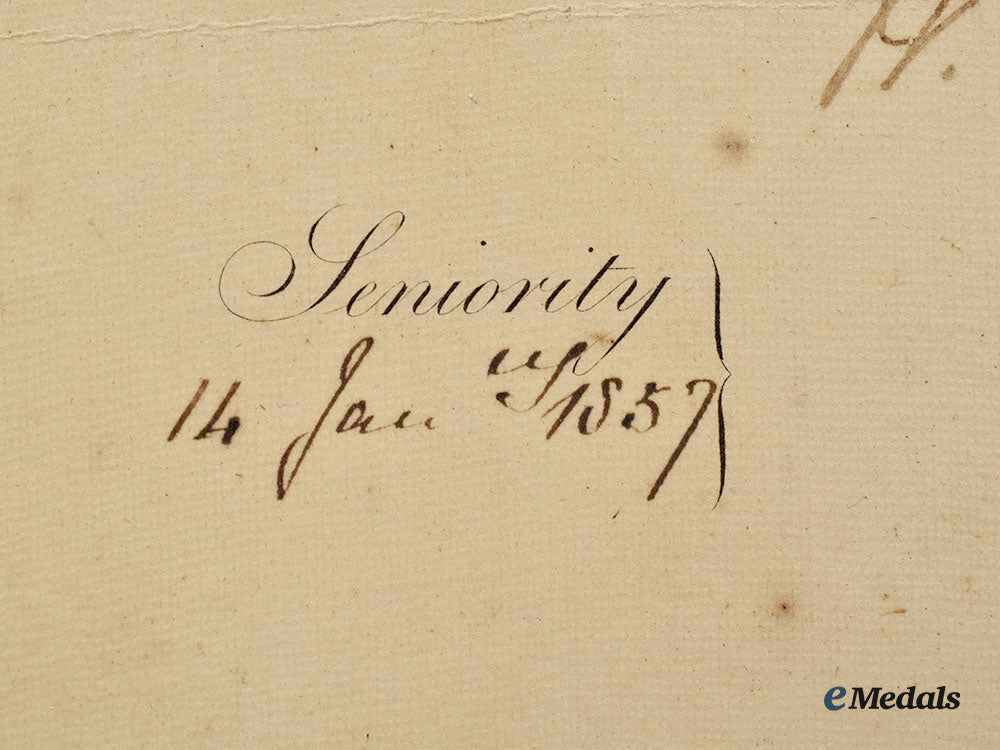 Seniority
14 Jan ry 1857
eMedals